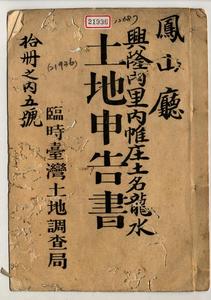 21936
鳳山廳
興隆內里內帷庄土名龍水
土地申告書
(21936)
拾冊之內五號
臨時臺灣土地調查局